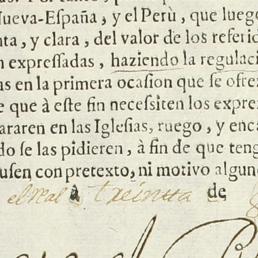 ueva-España, y el Perù, que lueg
nta, y clara, del valor de los referid
n expressadas, haziendo la regulaci
as en la primera ocasion que se ofre
e que à este fin necessiten los expre
araren en las Iglesias, ruego, y enca
do se las pidieren, à fin de que teng
usen con pretexto, ni motivo algun
el Real à treinta de